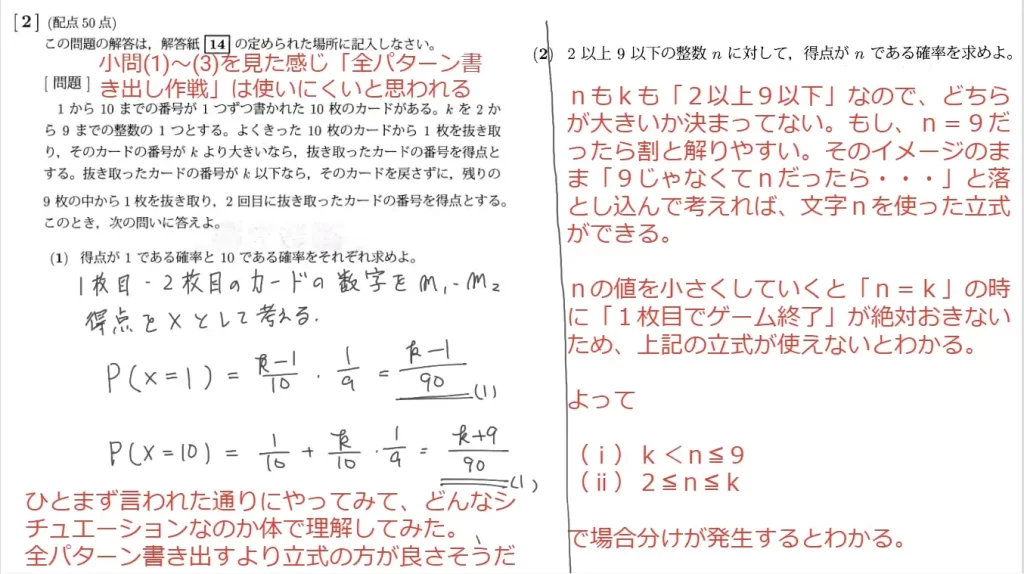 [2] (配点 50 点)
この問題の解答は，解答紙 14 の定められた場所に記入しなさい。
小問(1)～(3)を見た感じ「全パターン書
き出し作戦」は使いにくいと思われる
[問題]
1 から 10 までの番号が 1 つずつ書かれた 10 枚のカードがある。k を 2 か
ら 9 までの整数の 1 つとする。よくきった 10 枚のカードから 1 枚を抜き取
り，そのカードの番号が k より大きいなら，抜き取ったカードの番号を得点と
する。抜き取ったカードの番号が k 以下なら，そのカードを戻さずに，残りの
9 枚の中から 1 枚を抜き取り，2 回目に抜き取ったカードの番号を得点とする。
このとき，次の問いに答えよ。
(1) 得点が 1 である確率と 10 である確率をそれぞれ求めよ。
1枚目・2枚目のカードの数字を m₁, m₂
得点を X として考える.
P(X=1) = k-1/10 · 1/9 = k-1/90 (1)
P(X=10) = 1/10 + k/10 · 1/9 = k+9/90 (1)
ひとまず言われた通りにやってみて、どんなシ
チュエーションなのか体で理解してみた。
全パターン書き出すより立式の方が良さそうだ
(2) 2 以上 9 以下の整数 n に対して，得点が n である確率を求めよ。
ｎもｋも「２以上９以下」なので、どちら
が大きいか決まってない。もし、ｎ＝９だ
ったら割と解りやすい。そのイメージのま
ま「９じゃなくてｎだったら・・・」と落
とし込んで考えれば、文字ｎを使った立式
ができる。
ｎの値を小さくしていくと「ｎ＝ｋ」の時
に「１枚目でゲーム終了」が絶対おきない
ため、上記の立式が使えないとわかる。
よって
（ⅰ）ｋ＜ｎ≦９
（ⅱ）２≦ｎ≦ｋ
で場合分けが発生するとわかる。